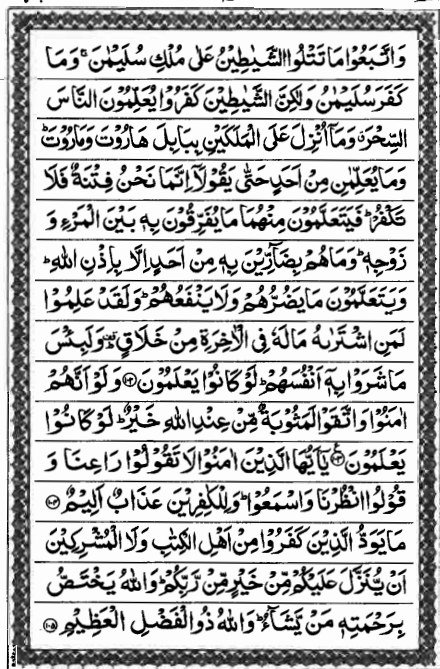 وَاتَّبَعُوْا مَا تَتْلُوا الشَّيٰطِيْنُ عَلٰى مُلْكِ سُلَيْمٰنَ ۚ وَمَا
كَفَرَ سُلَيْمٰنُ وَلٰكِنَّ الشَّيٰطِيْنَ كَفَرُوْا يُعَلِّمُوْنَ النَّاسَ
السِّحْرَ ۗ وَمَآ اُنْزِلَ عَلَى الْمَلَكَيْنِ بِبَابِلَ هَارُوْتَ وَمَارُوْتَ ؕ
وَمَا يُعَلِّمٰنِ مِنْ اَحَدٍ حَتّٰى يَقُوْلَآ اِنَّمَا نَحْنُ فِتْنَةٌ فَلَا
تَكْفُرْ ؕ فَيَتَعَلَّمُوْنَ مِنْهُمَا مَا يُفَرِّقُوْنَ بِهٖ بَيْنَ الْمَرْءِ وَ
زَوْجِهٖ ؕ وَمَا هُمْ بِضَآرِّيْنَ بِهٖ مِنْ اَحَدٍ اِلَّا بِاِذْنِ اللّٰهِ ؕ
وَيَتَعَلَّمُوْنَ مَا يَضُرُّهُمْ وَلَا يَنْفَعُهُمْ ؕ وَلَقَدْ عَلِمُوْا
لَمَنِ اشْتَرٰىهُ مَا لَهٗ فِى الْاٰخِرَةِ مِنْ خَلَاقٍ ؕ وَلَبِئْسَ
مَا شَرَوْا بِهٖٓ اَنْفُسَهُمْ ؕ لَوْ كَانُوْا يَعْلَمُوْنَ ﴿۱۰۲﴾ وَلَوْ اَنَّهُمْ
اٰمَنُوْا وَاتَّقَوْا لَمَثُوْبَةٌ مِّنْ عِنْدِ اللّٰهِ خَيْرٌ ؕ لَوْ كَانُوْا
يَعْلَمُوْنَ ﴿۱۰۳﴾ يٰٓاَيُّهَا الَّذِيْنَ اٰمَنُوْا لَا تَقُوْلُوْا رَاعِنَا وَ
قُوْلُوا انْظُرْنَا وَاسْمَعُوْا ؕ وَلِلْكٰفِرِيْنَ عَذَابٌ اَلِيْمٌ ﴿۱۰۴﴾
مَا يَوَدُّ الَّذِيْنَ كَفَرُوْا مِنْ اَهْلِ الْكِتٰبِ وَلَا الْمُشْرِكِيْنَ
اَنْ يُّنَزَّلَ عَلَيْكُمْ مِّنْ خَيْرٍ مِّنْ رَّبِّكُمْ ؕ وَاللّٰهُ يَخْتَصُّ
بِرَحْمَتِهٖ مَنْ يَّشَآءُ ؕ وَاللّٰهُ ذُو الْفَضْلِ الْعَظِيْمِ ﴿۱۰۵﴾